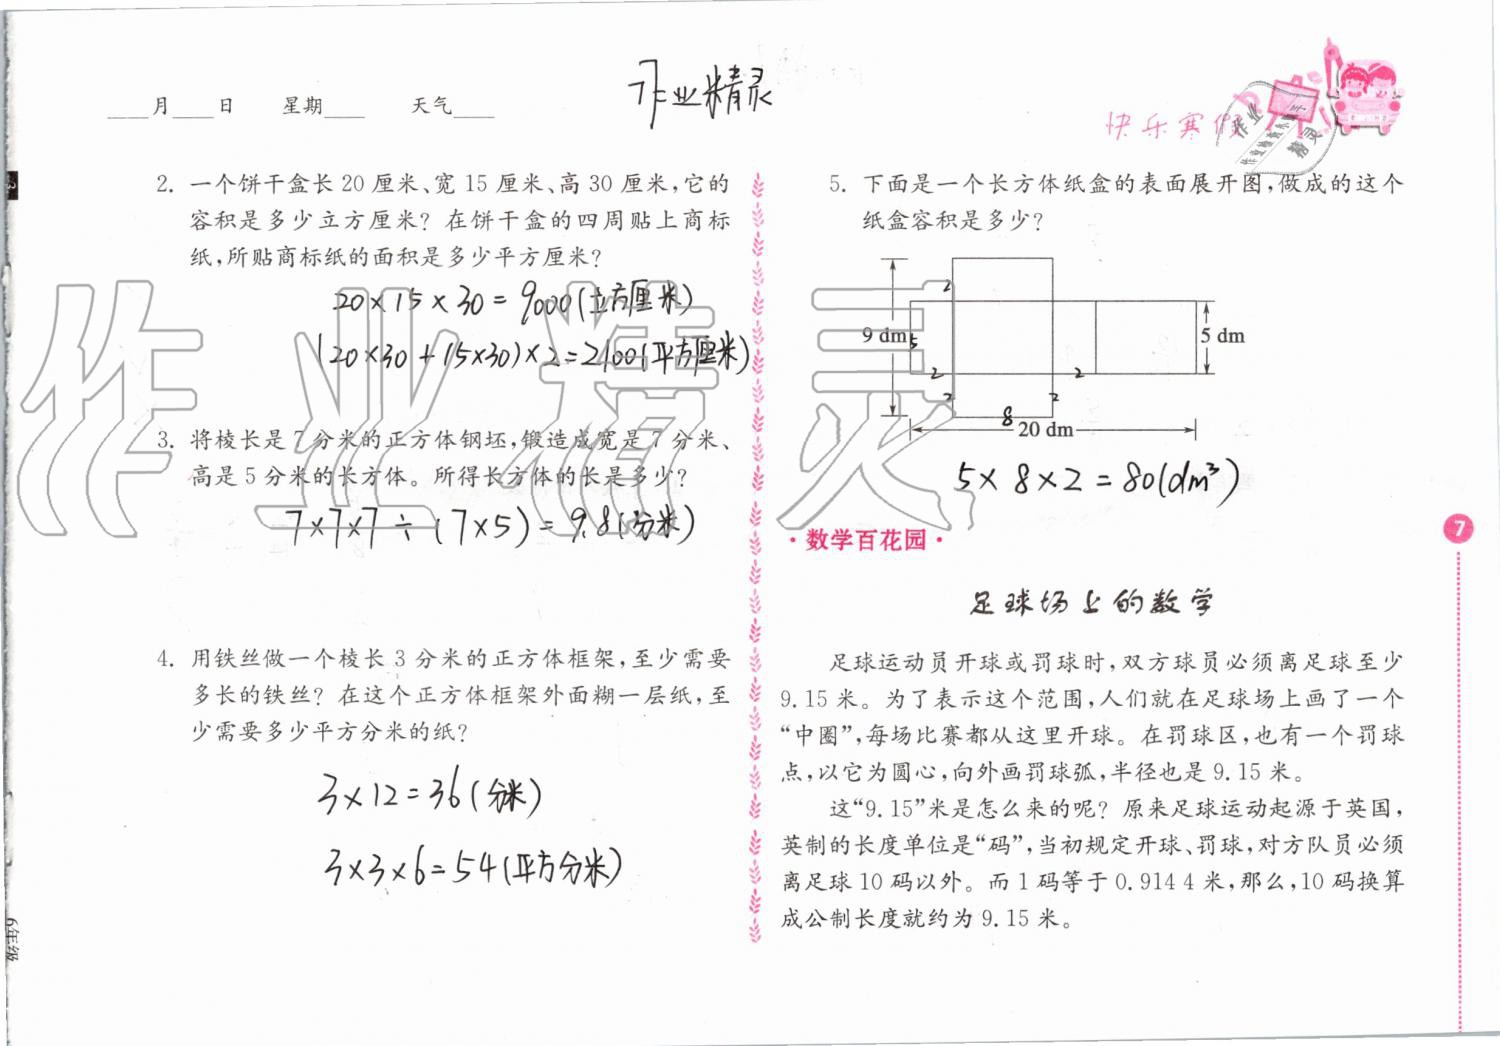 ____月____日 星期____ 天气____
作业精灵
快乐寒假
作业
作业检查小助手
精灵
2. 一个饼干盒长20厘米、宽15厘米、高30厘米,它的
容积是多少立方厘米? 在饼干盒的四周贴上商标
纸,所贴商标纸的面积是多少平方厘米?
20×15×30=9000(立方厘米)
(20×30+15×30)×2=2100(平方厘米)
3. 将棱长是7分米的正方体钢坯,锻造成宽是7分米、
高是5分米的长方体。所得长方体的长是多少?
7×7×7÷(7×5)=9.8(分米)
4. 用铁丝做一个棱长3分米的正方体框架,至少需要
多长的铁丝? 在这个正方体框架外面糊一层纸,至
少需要多少平方分米的纸?
3×12=36(分米)
3×3×6=54(平方分米)
6年级
作业精灵
5. 下面是一个长方体纸盒的表面展开图,做成的这个
纸盒容积是多少?
2
9 dm
5
5 dm
2
2
2
2
8
20 dm
5×8×2=80(dm³)
·数学百花园·
7
足球场上的数学
足球运动员开球或罚球时,双方球员必须离足球至少
9.15米。为了表示这个范围,人们就在足球场上画了一个
“中圈”,每场比赛都从这里开球。在罚球区,也有一个罚球
点,以它为圆心,向外画罚球弧,半径也是9.15米。
这“9.15”米是怎么来的呢? 原来足球运动起源于英国,
英制的长度单位是“码”,当初规定开球、罚球,对方队员必须
离足球10码以外。而1码等于0.914 4米,那么,10码换算
成公制长度就约为9.15米。